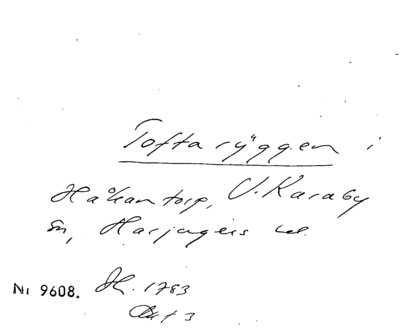 Toftaryggen i
Håkantorp, V. Karaby
sn, Harjagers hd.
Nr 9608. Sk. 1783
Akt 3